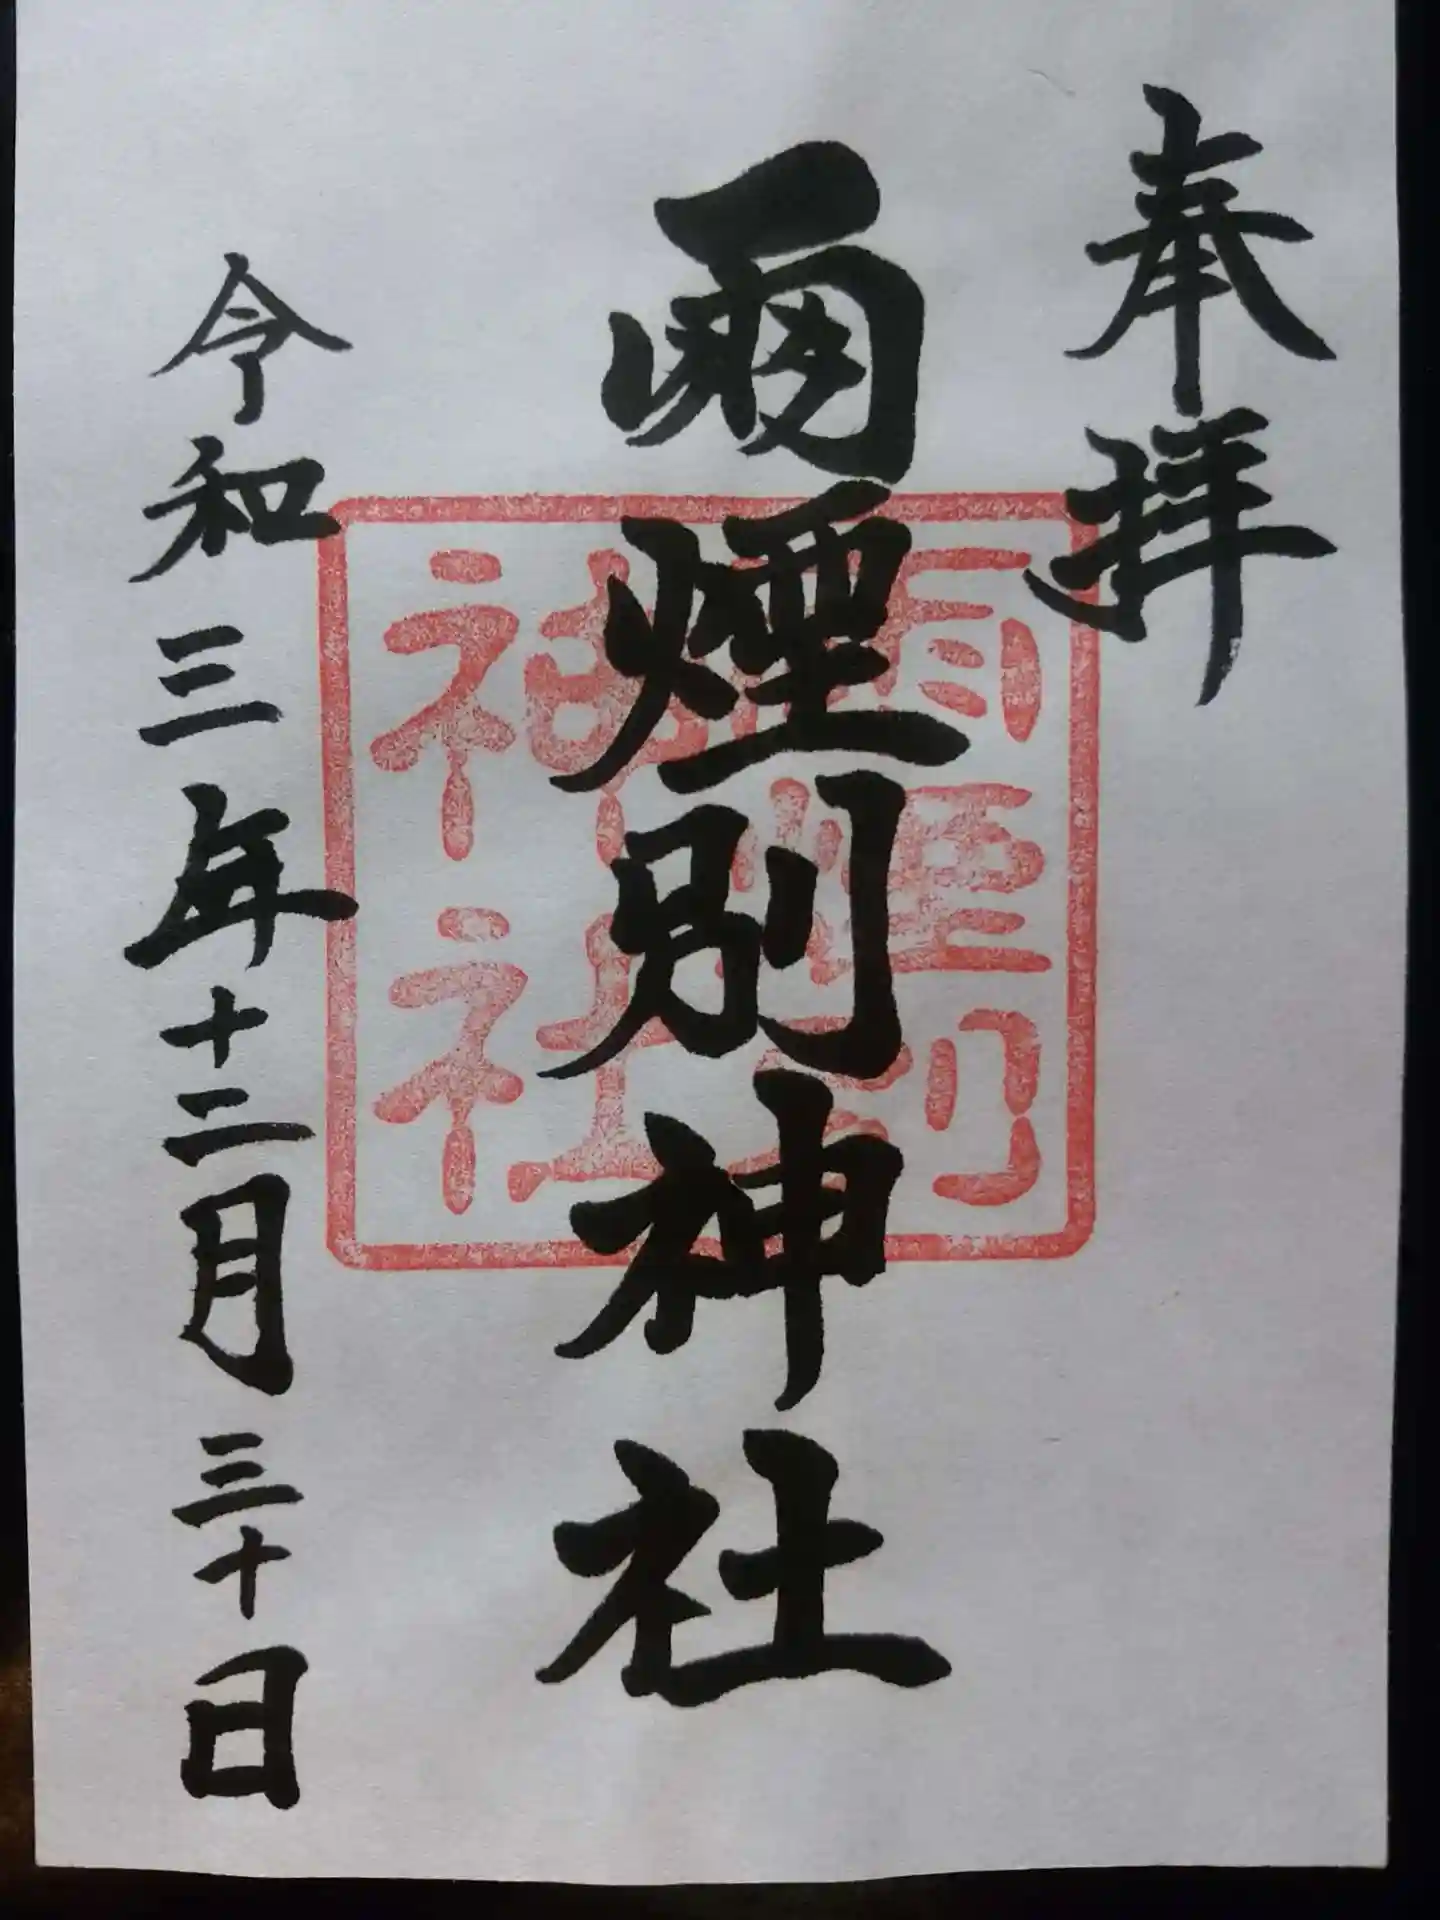 奉拝
雨煙別神社
令和三年十二月三十日
雨煙別
神社